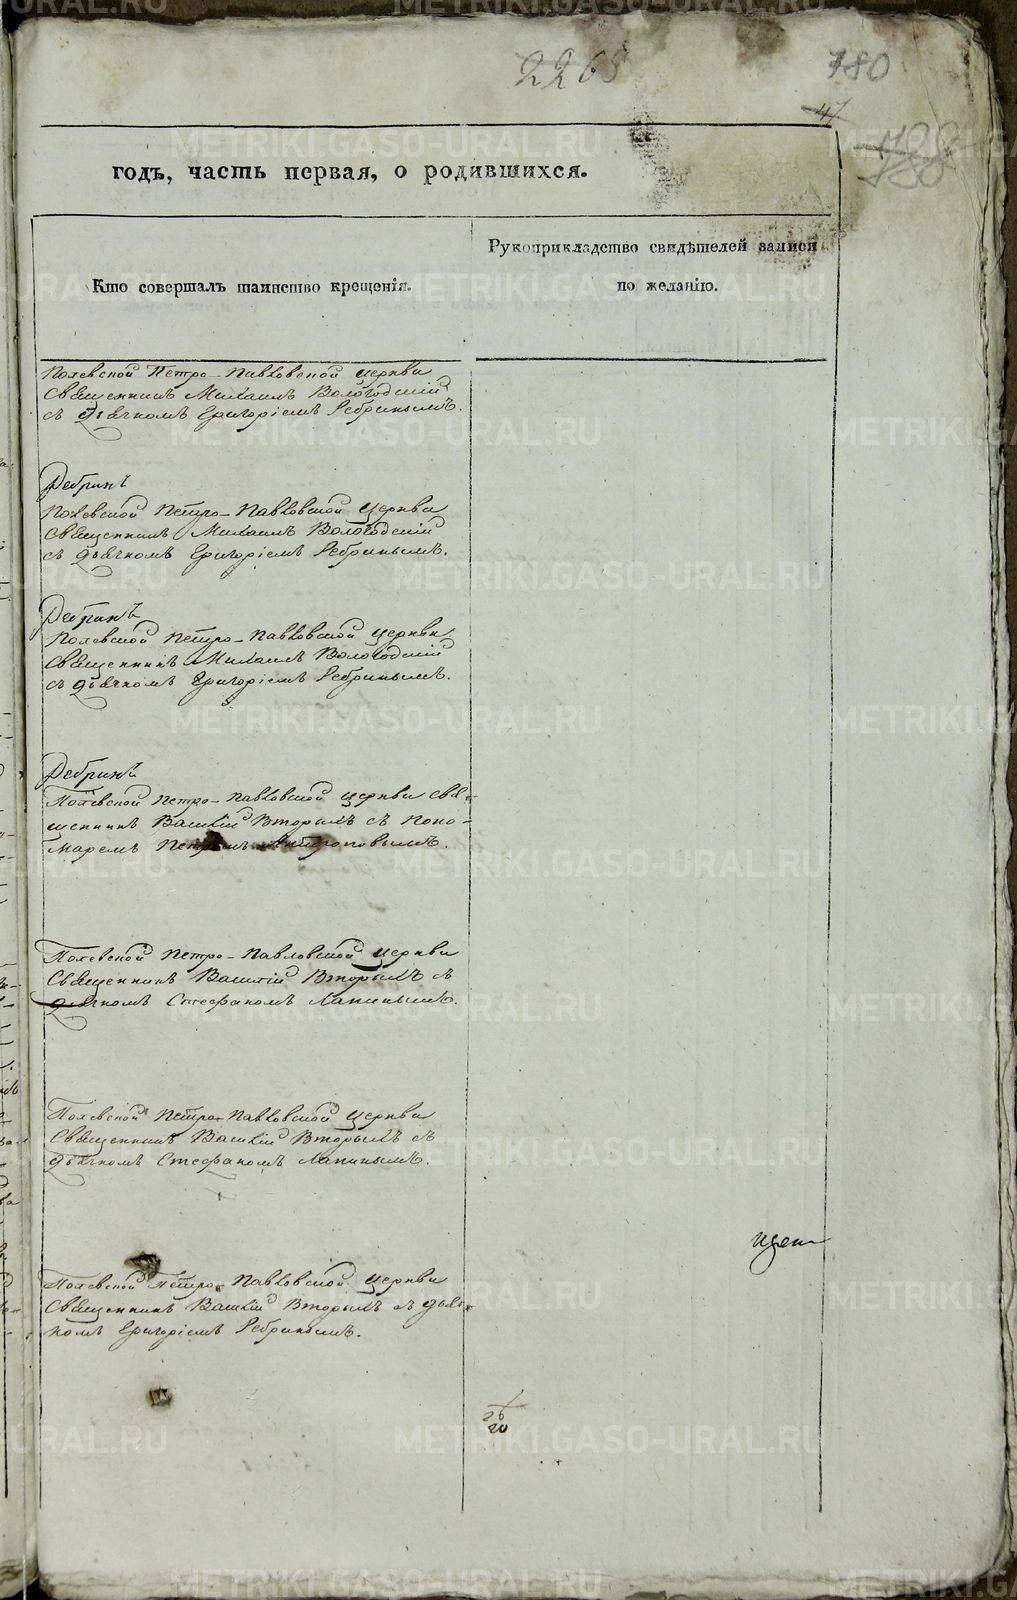 2265
180
47
188
годъ, часть первая, о родившихся.
Кто совершалъ таинство крещенія.
Рукоприкладство свидѣтелей записи
по желанію.
Полевской Петро-Павловской церкви
Священникъ Михаилъ Вологодскій
съ дьячкомъ Григоріемъ Ребринымъ.
Ребринъ
Полевской Петро-Павловской церкви
Священникъ Михаилъ Вологодскій
съ дьячкомъ Григоріемъ Ребринымъ.
Ребринъ
Полевской Петро-Павловской церкви
Священникъ Михаилъ Вологодскій
съ дьячкомъ Григоріемъ Ребринымъ.
Ребринъ
Полевской Петро-Павловской церкви свя-
щенникъ Василій Вторыхъ съ поно-
маремъ Петромъ Антроповымъ.
Полевской Петро-Павловской церкви
Священникъ Василій Вторыхъ съ
дьячкомъ Стефаномъ Лапинымъ.
Полевской Петро-Павловской церкви
Священникъ Василій Вторыхъ съ
дьячкомъ Стефаномъ Лапинымъ.
Полевской Петро-Павловской церкви
Священникъ Василій Вторыхъ съ дьяч-
комъ Григоріемъ Ребринымъ.
20
METRIKI.GASO-URAL.RU